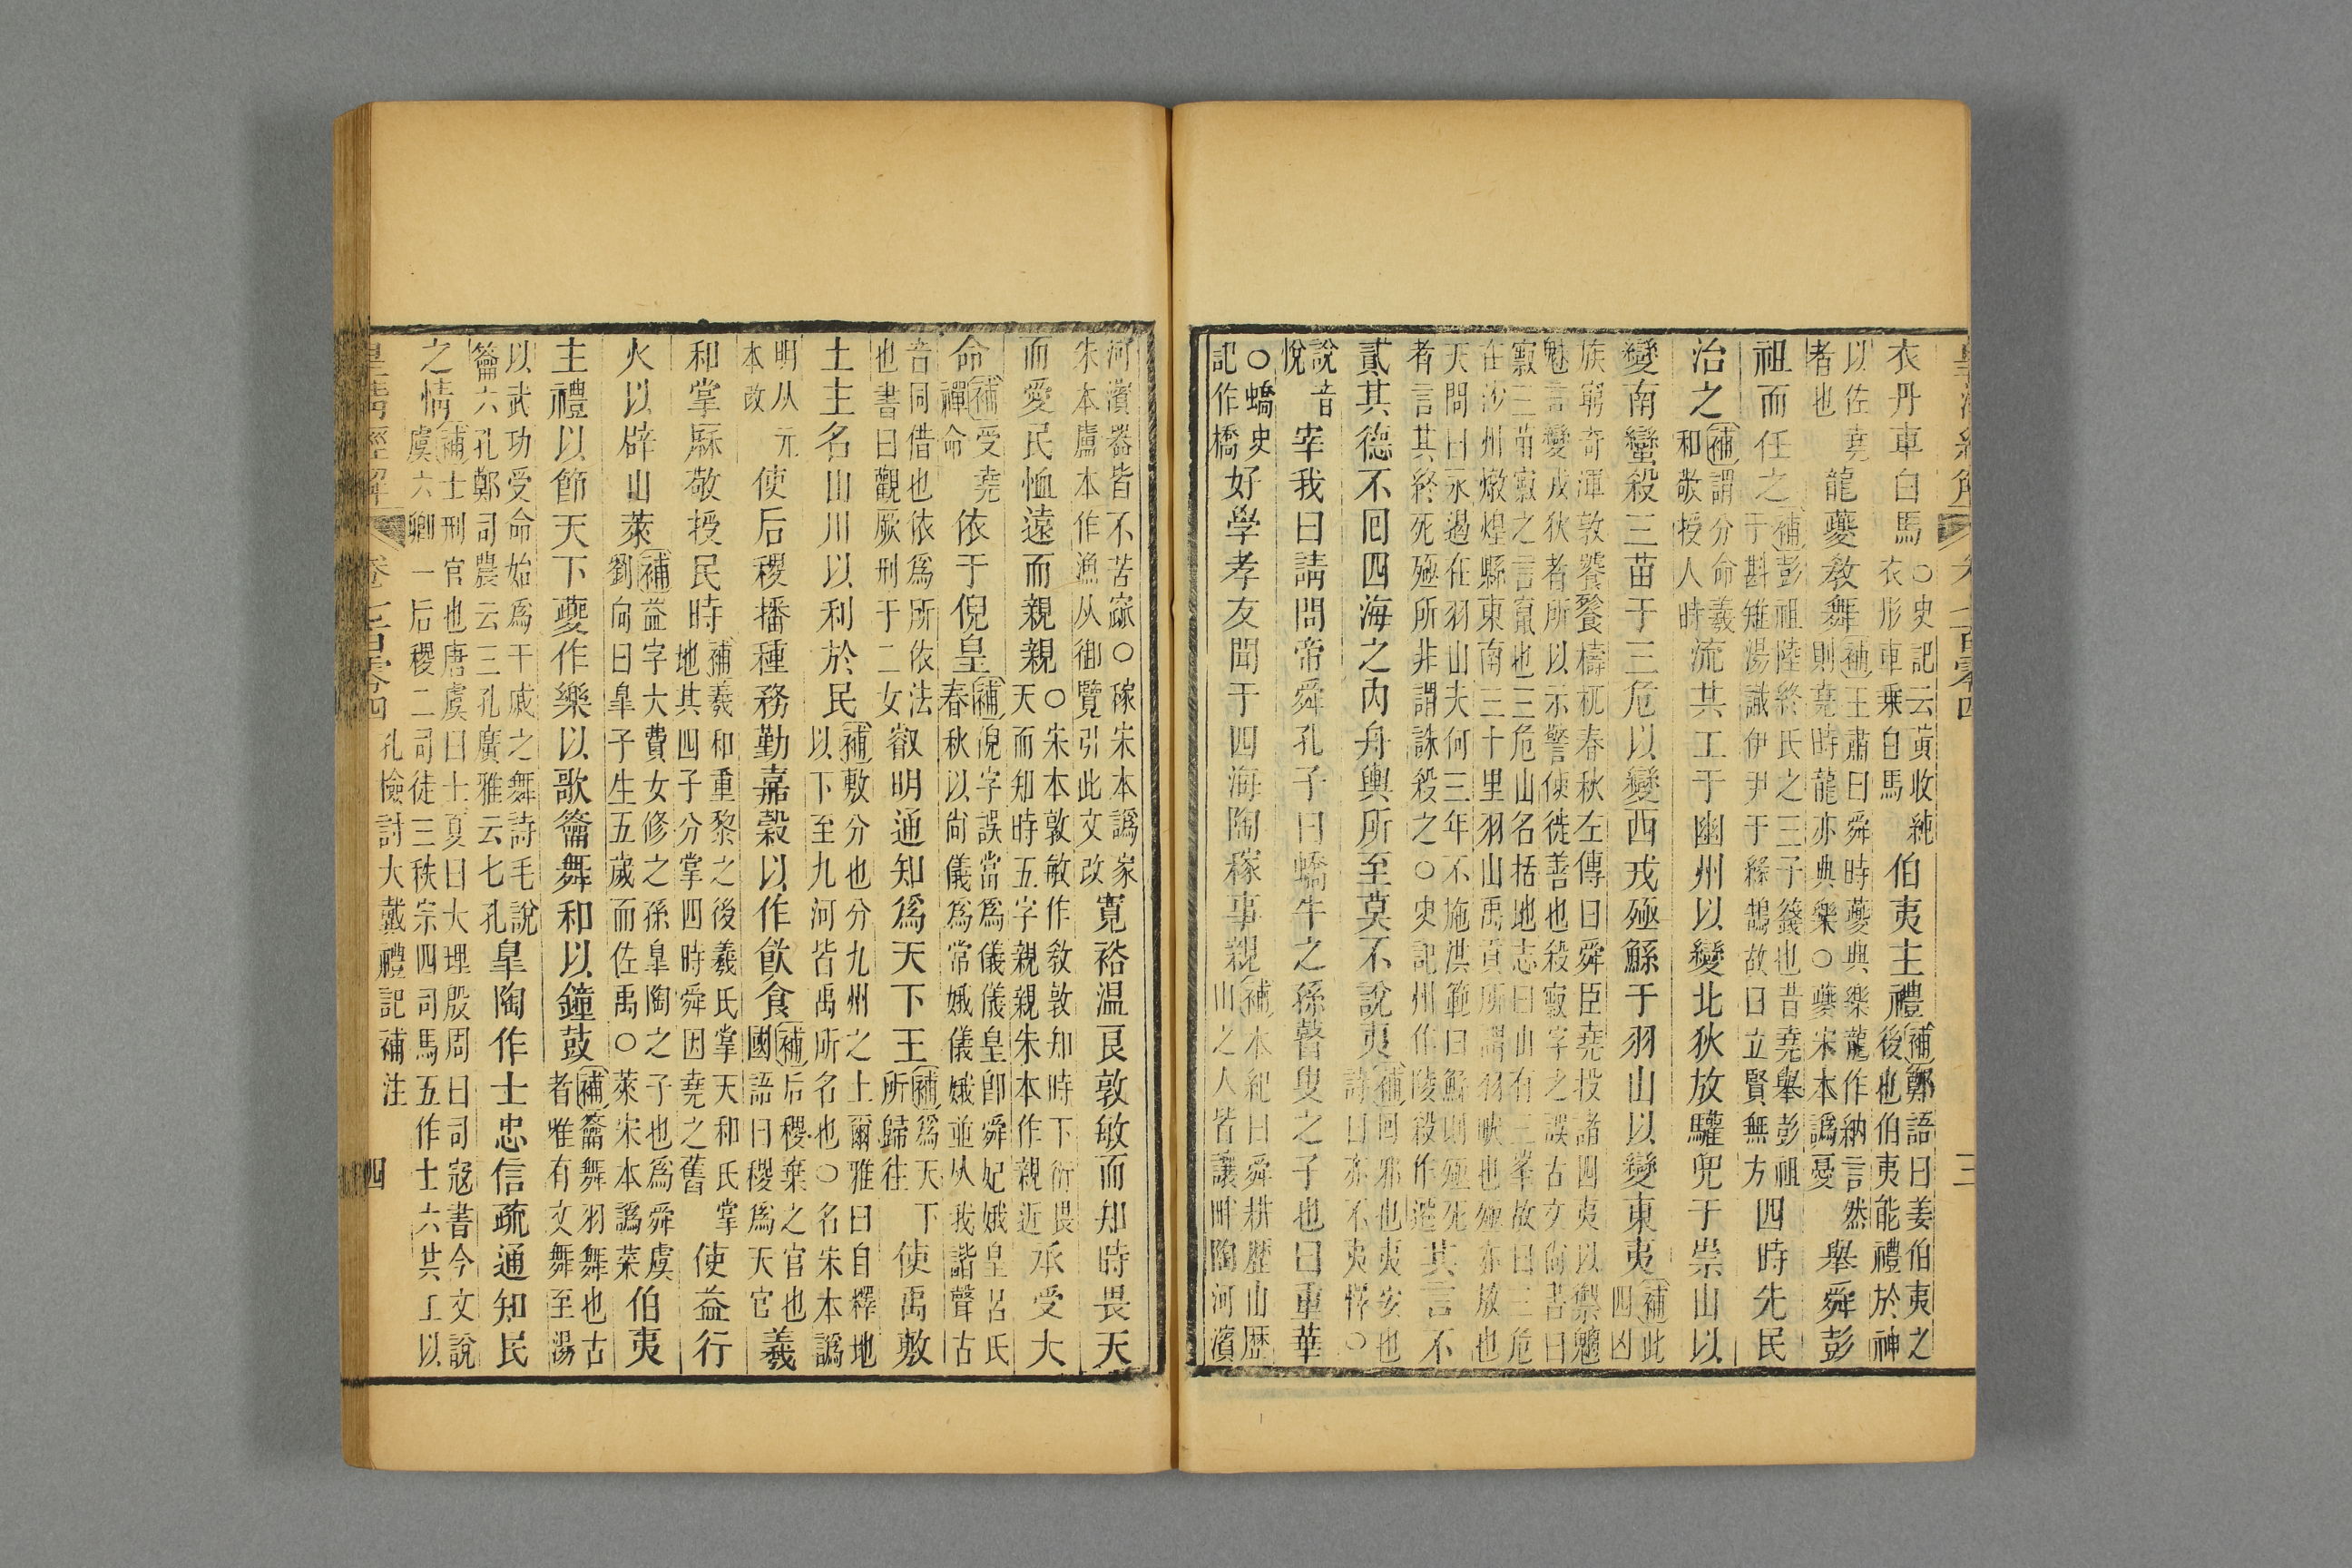 皇清經解 卷七百零四 三
衣丹車白馬
○史記云黃收純
衣彤車乘白馬
伯夷主禮
補鄭語曰姜伯夷之
後也伯夷能禮於神
以佐堯
者也
龍夔教舞
補王肅曰舜時夔典樂龍作納言然
則堯時龍亦典樂○夔宋本譌憂
舉舜彭
祖而任之
補彭祖陸終氏之三子籛也昔堯舉彭祖
于斟雉湯識伊尹于緐鵠故曰立賢無方
四時先民
治之
補謂分命羲
和敬授人時
流共工于幽州以變北狄放驩兜于崇山以
變南蠻殺三苗于三危以變西戎殛鯀于羽山以變東夷
補此
四凶
族窮奇渾敦饕餮檮杌春秋左傳曰舜臣堯投諸四夷以禦魑
魅言變戎狄者所以示警使徙善也殺竄字之誤古文尚書曰
竄三苗竄之言竄也三危山名括地志曰山有三峯故曰三危
在沙州燉煌縣東南三十里羽山禹貢所謂羽畎也殛亦放也
天問曰永遏在羽山夫何三年不施洪範曰鯀則殛死
者言其終死殛所非謂誅殺之○史記州作陵殺作遷
其言不
貳其德不囘四海之內舟輿所至莫不說夷
補囘邪也夷安也
詩曰亦不夷懌○
說音
悅
宰我曰請問帝舜孔子曰蟜牛之孫瞽叟之子也曰重華
○蟜史
記作橋
好學孝友聞于四海陶稼事親
補本紀曰舜耕歷山歷
山之人皆讓畔陶河濱
河濱器皆不苦窳○稼宋本譌家
朱本盧本作漁从御覽引此文改
寬裕溫良敦敏而知時畏天
而愛民恤遠而親親
○宋本敦敏作敎敦知時下衍畏
天而知時五字親親朱本作親近
承受大
命
補受堯
禪命
依于倪皇
補倪字誤當爲儀儀皇卽舜妃娥皇呂氏
春秋以尚儀爲常娥儀娥並从我諧聲古
音同借也依爲所依法
也書曰觀厥刑于二女
叡明通知爲天下王
補爲天下
所歸往
使禹敷
土主名山川以利於民
補敷分也分九州之土爾雅曰自釋地
以下至九河皆禹所名也○名朱本譌
明从元
本改
使后稷播種務勤嘉穀以作飮食
補后稷棄之官也
國語曰稷爲天官
羲
和掌厤敬授民時
補羲和重黎之後羲氏掌天和氏掌
地其四子分掌四時舜因堯之舊
使益行
火以辟山萊
補益字大費女修之孫皐陶之子也爲舜虞
劉向曰皐子生五歲而佐禹○萊宋本譌菜
伯夷
主禮以節天下夔作樂以歌籥舞和以鐘鼓
補籥舞羽舞也古
者唯有文舞至湯
以武功受命始爲干戚之舞詩毛說
籥六孔鄭司農云三孔廣雅云七孔
皐陶作士忠信疏通知民
之情
補士刑官也唐虞曰士夏曰大理殷周曰司寇書今文說
虞六卿一后稷二司徒三秩宗四司馬五作士六共工以
皇清經解 卷七百零四 孔檢討大戴禮記補注 四